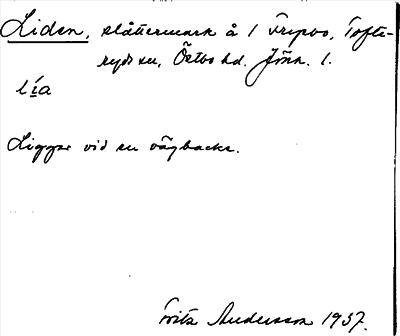 Liden, slåttermark å 1 Fripbo, Tofte-
ryds sn, Östbo hd. Jönk. l.
lía
Ligger vid en vägbacke.
Fritz Andersson 1937.